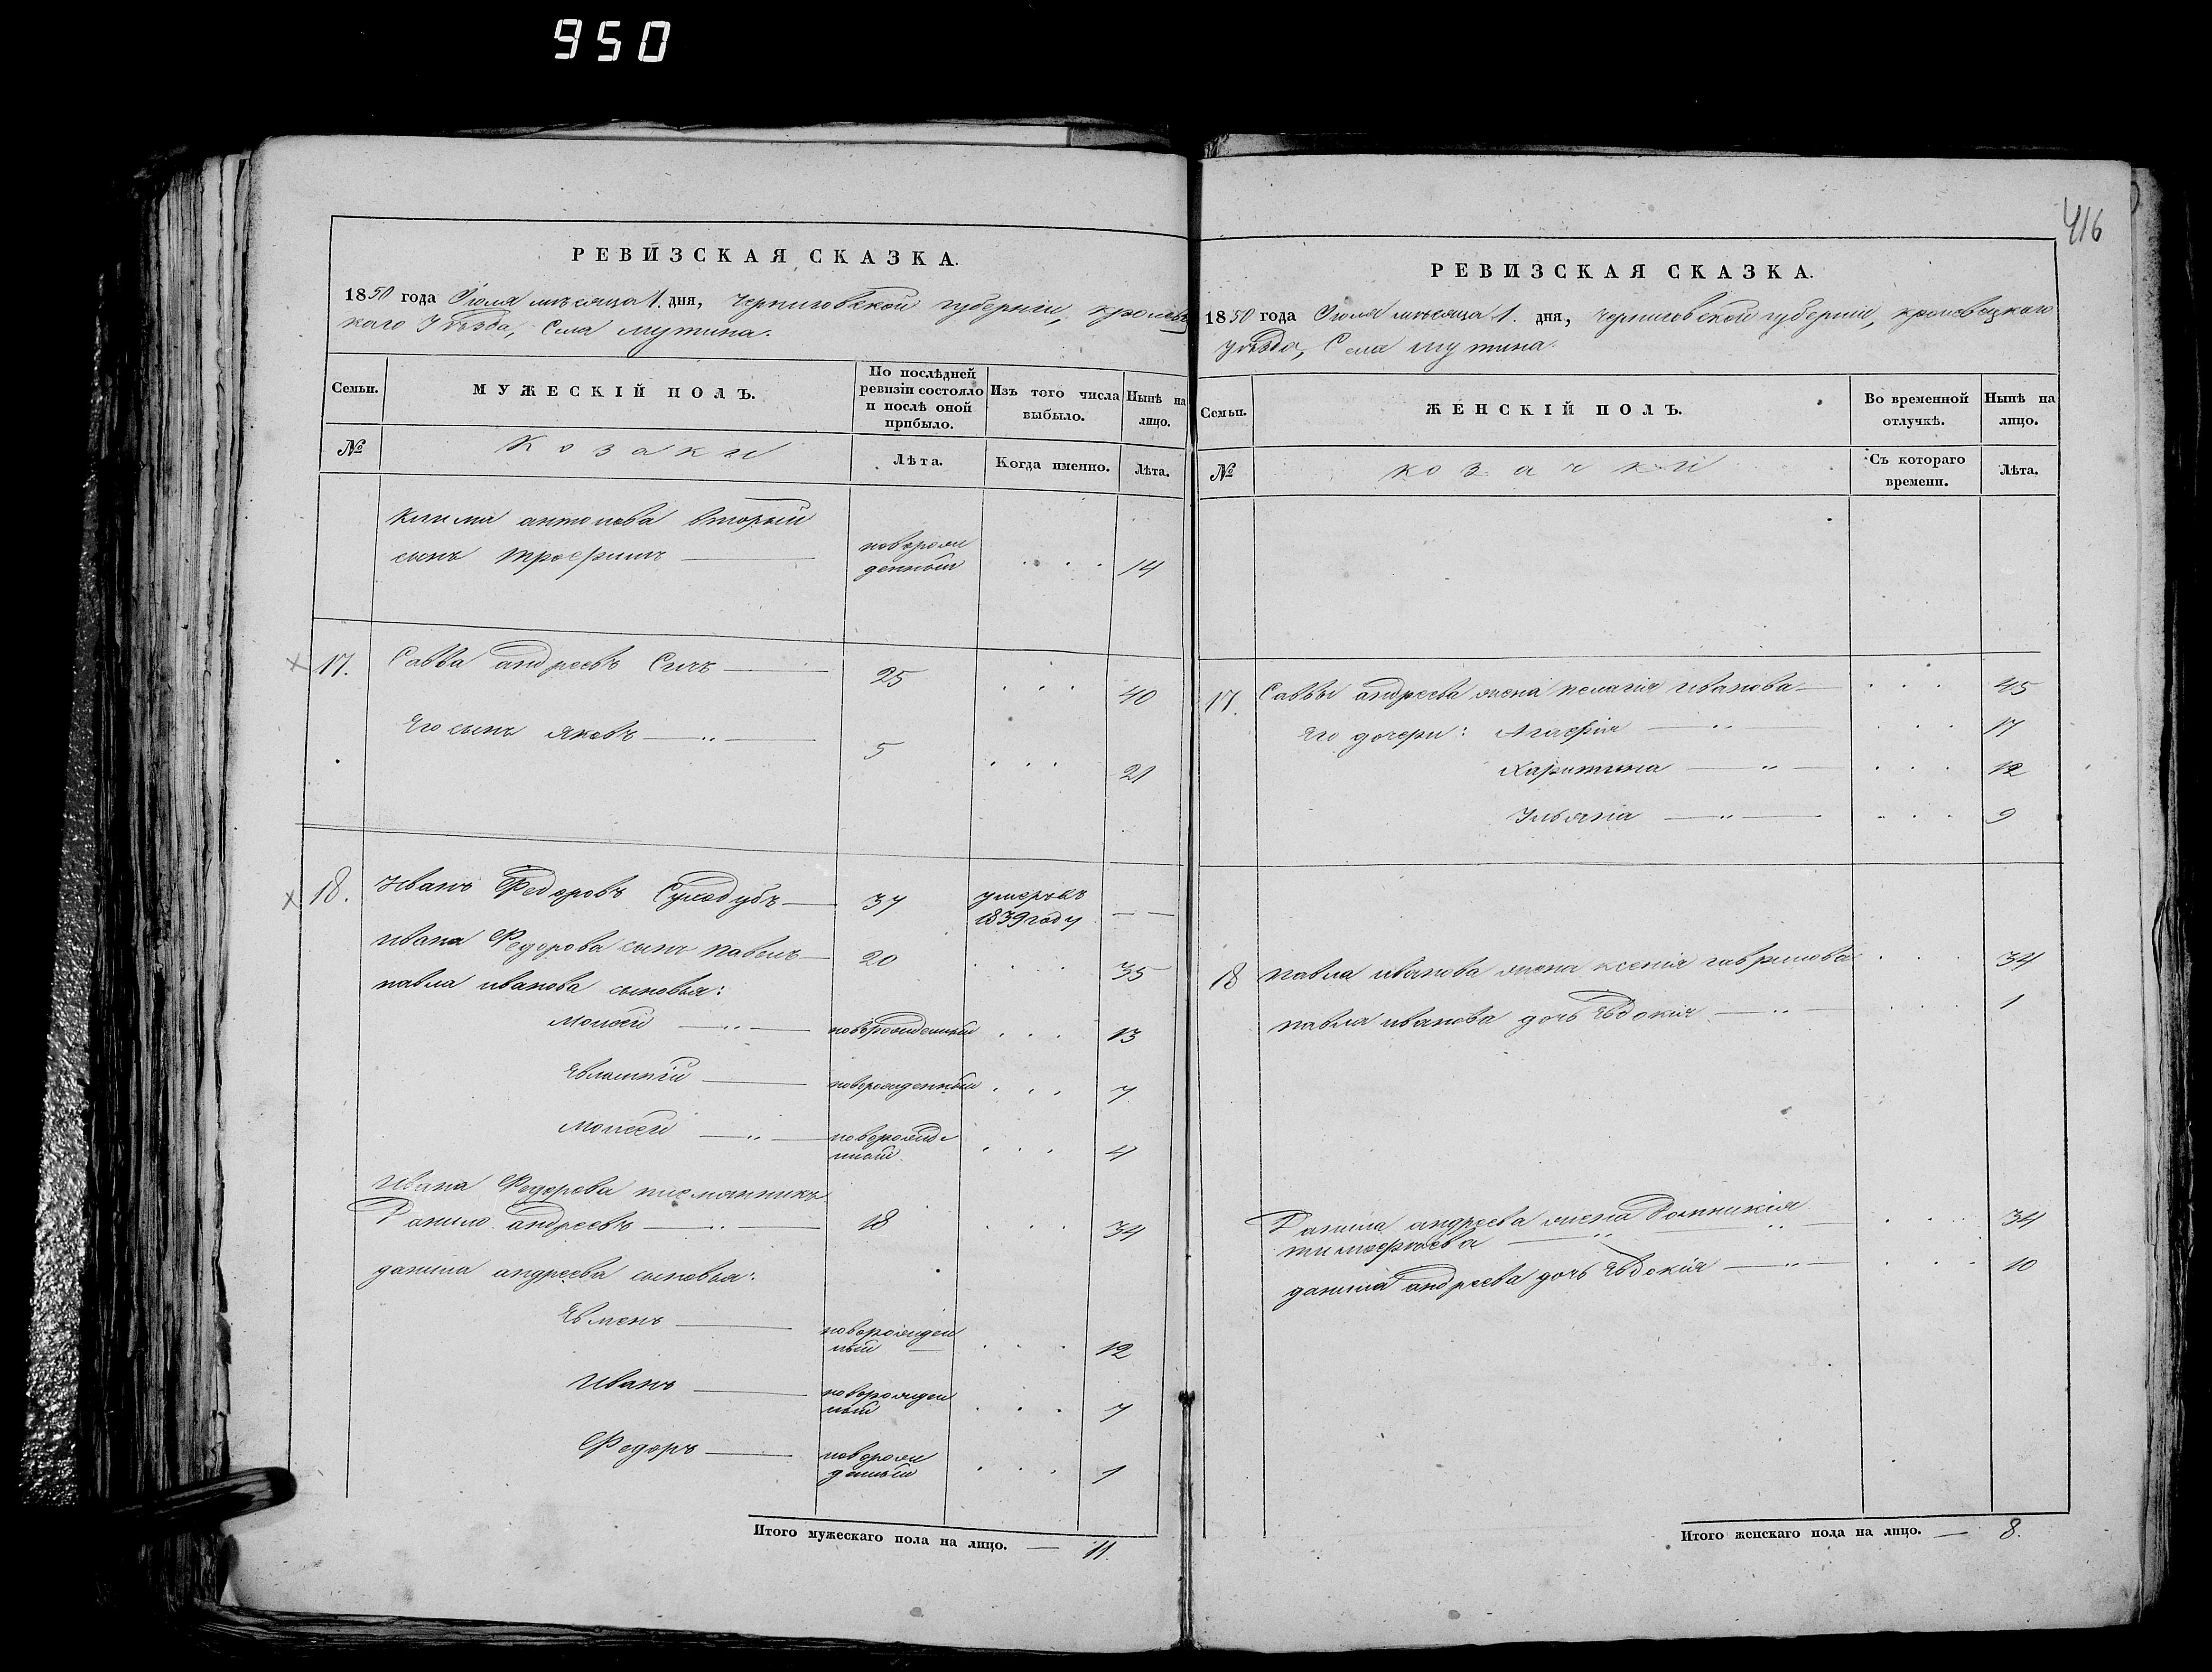 950
416
РЕВИЗСКАЯ СКАЗКА.
1850 года Іюля мѣсяца 1. дня, Черниговской губерніи, кролевец
каго Уѣзда, Села мутина.
Семьи. МУЖЕСКІЙ ПОЛЪ. По послѣдней ревизіи состояло и послѣ оной прибыло. Изъ того числа выбыло. Нынѣ на лицо.
№ Козаки Лѣта. Когда именно. Лѣта.
Клима антонова вторый
сынъ трофимъ новорож денный 14
17. Савва андреевъ Сичъ 25 40
Его сынъ яковъ 5 21
18. Иванъ Федоровъ Суходубъ 37 умеръ въ 1839 году
ивана Федорова сынъ павелъ 20 35
павла иванова сыновья:
Моисей новорожденный 13
Евлампій новорожденный 7
Моисей новорожде нный 4
Ивана Федорова племянникъ
Данило андреевъ 18 34
данила андреева сыновья:
Евменъ новорожден ный 12
Иванъ новорожден ный 7
Федоръ новорож денный 1
Итого мужескаго пола на лицо. 11.
РЕВИЗСКАЯ СКАЗКА.
1850 года Іюля мѣсяца 1. дня, Черниговской губерніи, кролевецкаго
уѣзда, Села мутина.
Семьи. ЖЕНСКІЙ ПОЛЪ. Во временной отлучкѣ. Нынѣ на лицо.
№ козачки Съ котораго времени. Лѣта.
17. Саввы андреева жена пелагія иванова 45
Его дочери: Агафія 17
Харитина 12
Ульяна 9
18 павла иванова жена ксенія гаврилова 34
павла иванова дочь Евдокія 1
Данила андреева жена Домникія
тимофеева 34
данила андреева дочь Евдокія 10
Итого женскаго пола на лицо. 8.